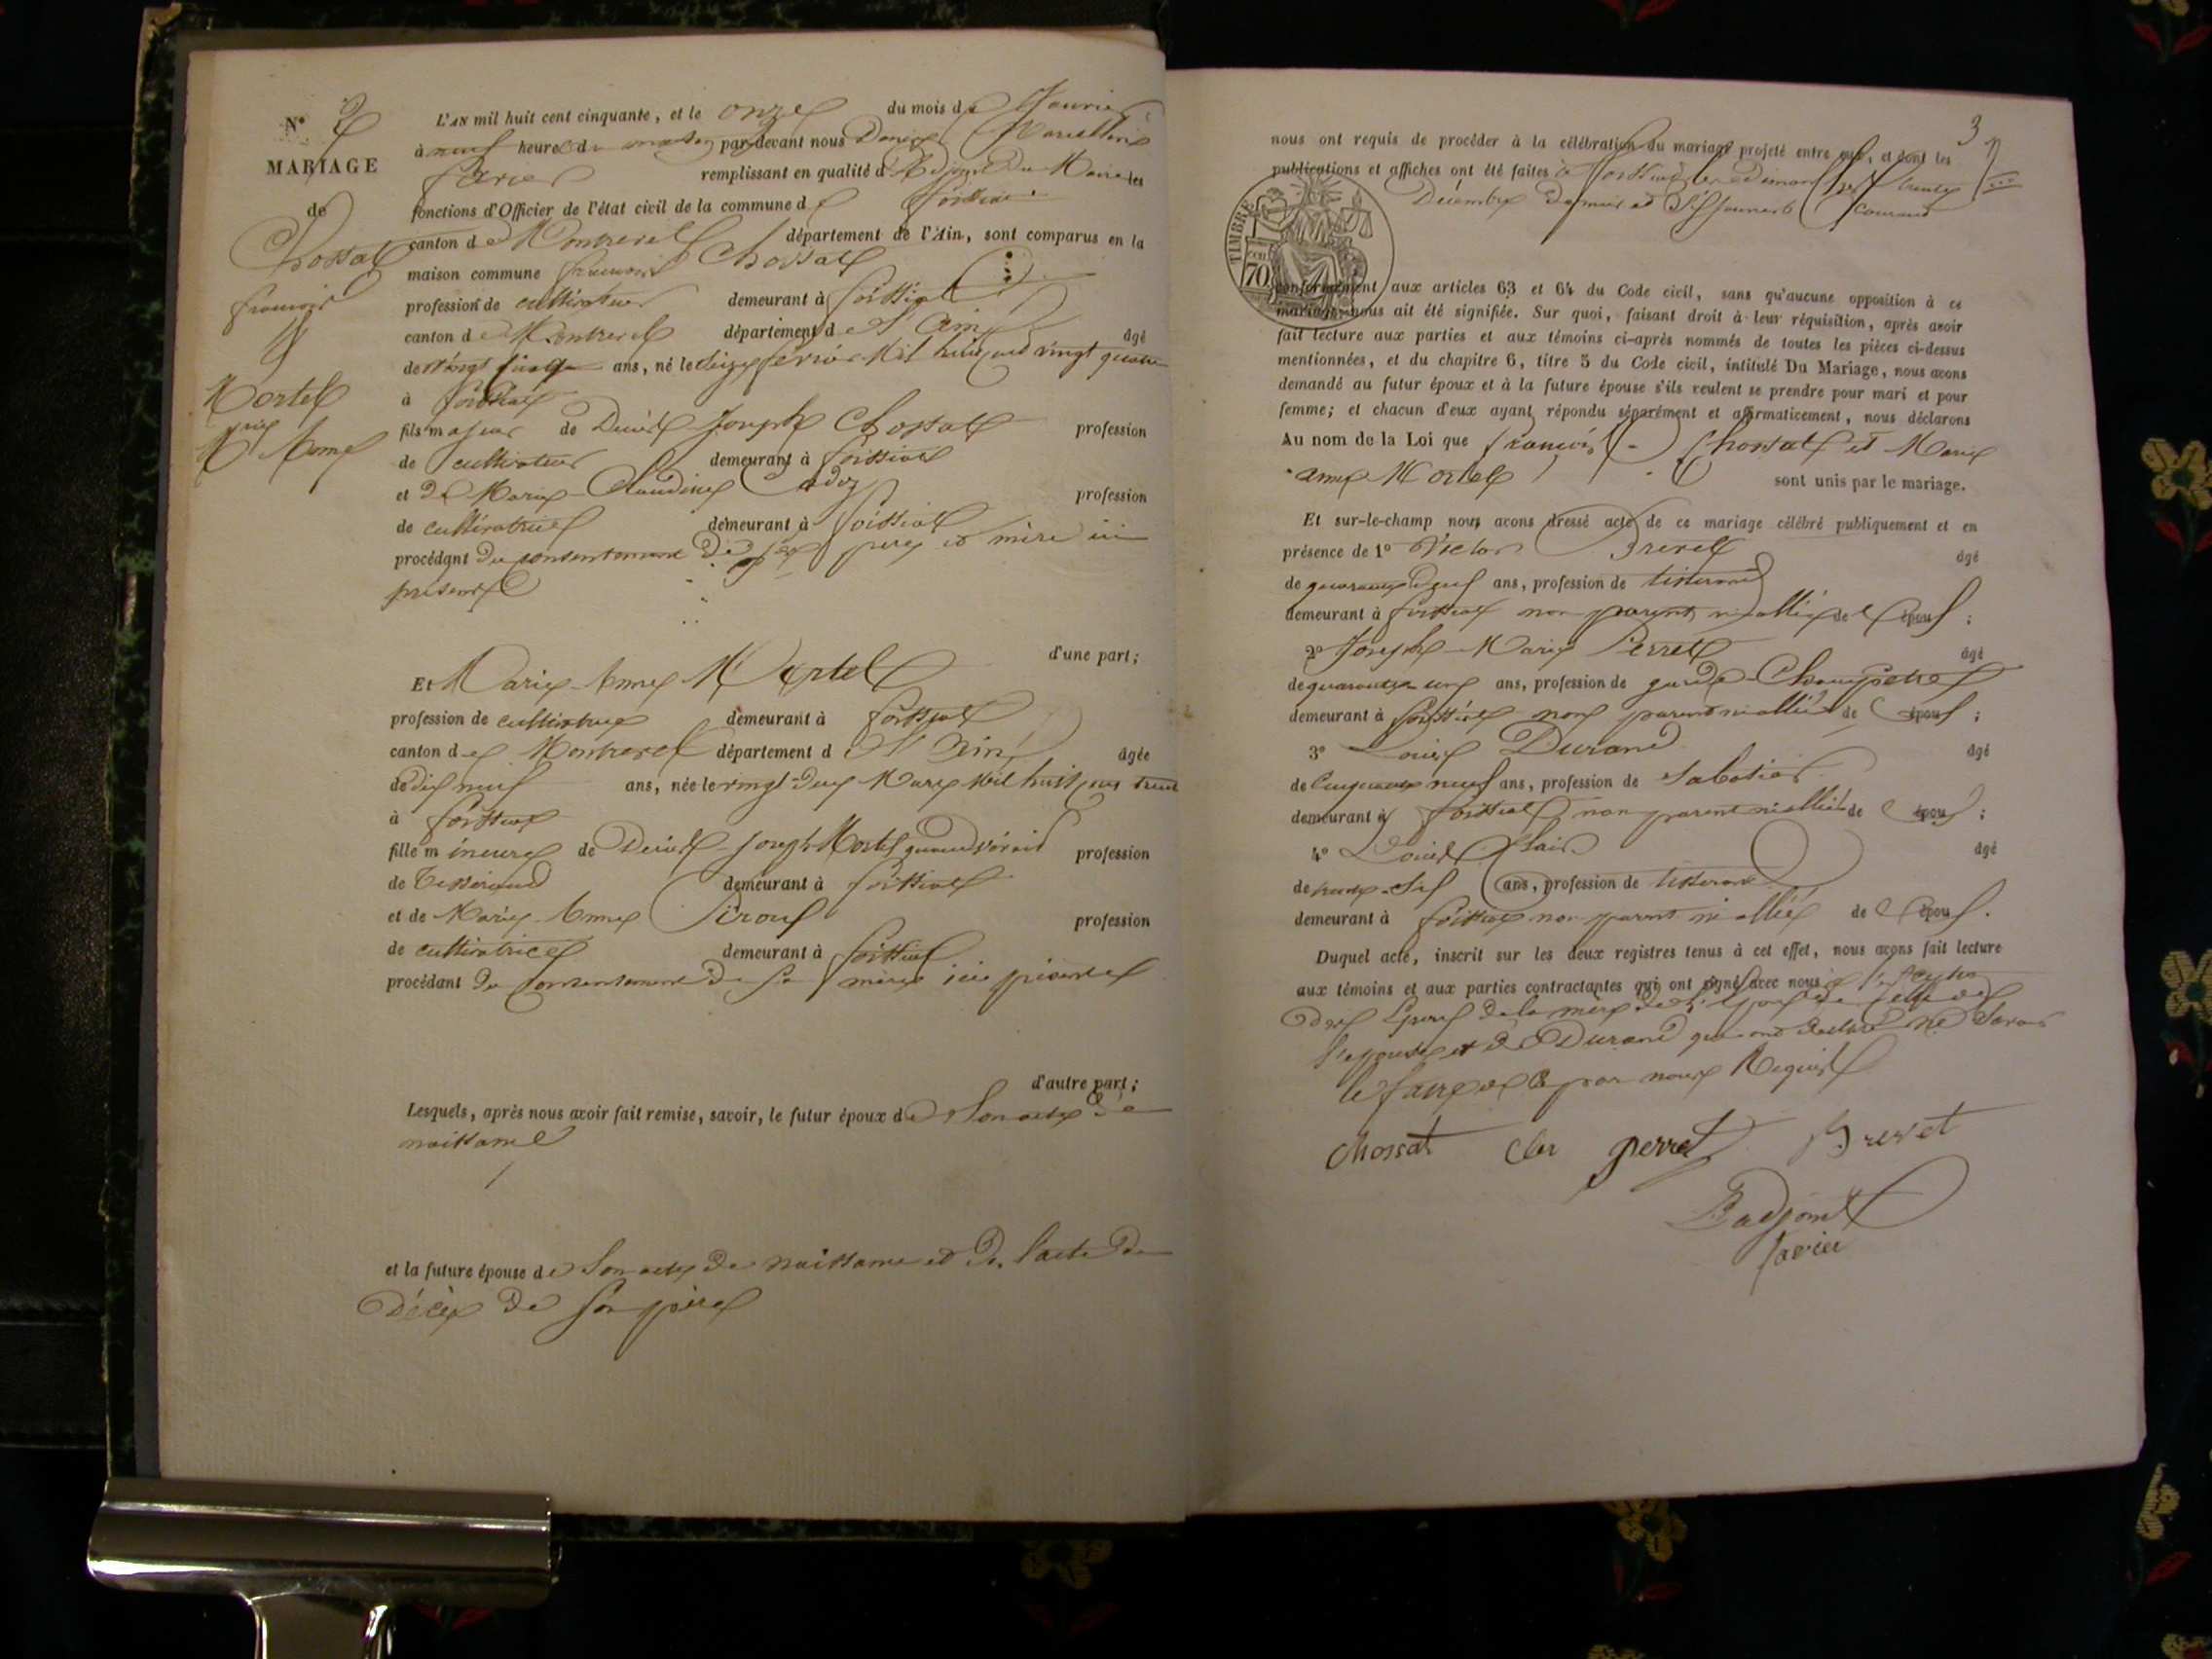 N° 2
MARIAGE
de
Chossat
françois
&
Mortel
M^rie Anne
L'AN mil huit cent cinquante, et le onze du mois de Janvier
à neuf heures du matin par-devant nous Denis Marcellin
favier remplissant en qualité d'Adjoint du Maire les
fonctions d'Officier de l'état civil de la commune de foissiat
canton de Montrevel département de l'Ain, sont comparus en la
maison commune françois Chossat
profession de cultivateur demeurant à foissiat
canton de Montrevel département de l'Ain âgé
de vingt cinq ans, né le seize février Mil huit cent vingt quatre
à foissiat
fils majeur de Joseph Chossat profession
de cultivateur demeurant à foissiat
et de Marie Claudine profession
de cultivatrice demeurant à foissiat
procédant du consentement de ses père et mère ici
présents
d'une part;
Et Marie Anne Mortel
profession de cultivatrice demeurant à foissiat
canton de Montrevel département de l'Ain âgée
de dix neuf ans, née le vingt-deux Mars Mil huit cent trente
à foissiat
fille mineure de Joseph Mortel quand vivait profession
de Tisserand demeurant à foissiat
et de Marie Anne Piroux profession
de cultivatrice demeurant à foissiat
procédant du consentement de sa mère ici présente
d'autre part;
Lesquels, après nous avoir fait remise, savoir, le futur époux de Son acte de
naissance
et la future épouse de Son acte de naissance et de l'acte de
décès de Son père
3
nous ont requis de procéder à la célébration du mariage projeté entre eux, et dont les
publications et affiches ont été faites à foissiat les dimanches trente
Décembre dernier et Six Janvier courant
TIMBRE
70
conformément aux articles 63 et 64 du Code civil, sans qu'aucune opposition à ce
mariage nous ait été signifiée. Sur quoi, faisant droit à leur réquisition, après avoir
fait lecture aux parties et aux témoins ci-après nommés de toutes les pièces ci-dessus
mentionnées, et du chapitre 6, titre 5 du Code civil, intitulé Du Mariage, nous avons
demandé au futur époux et à la future épouse s'ils veulent se prendre pour mari et pour
femme; et chacun d'eux ayant répondu séparément et affirmativement, nous déclarons
Au nom de la Loi que françois Chossat et Marie
anne Mortel sont unis par le mariage.
Et sur-le-champ nous avons dressé acte de ce mariage célébré publiquement et en
présence de 1° Victor Brevet âgé
de quarante neuf ans, profession de tisserand
demeurant à foissiat non parent ni allié des époux;
2° Joseph Marie Perret âgé
de quarante un ans, profession de garde Champêtre
demeurant à foissiat non parent ni allié des époux;
3° Louis Durand âgé
de Cinquante neuf ans, profession de Sabotier
demeurant à foissiat non parent ni allié des époux;
4° Louis âgé
de trente six ans, profession de tisserand
demeurant à foissiat non parent ni allié des époux.
Duquel acte, inscrit sur les deux registres tenus à cet effet, nous avons fait lecture
aux témoins et aux parties contractantes qui ont signé avec nous à l'exception
des époux de la mère de l'époux de celle de
l'épouse et de Durand qui ont déclaré ne Savoir
le faire de ce par nous Requis
Chossat Cler perret Brevet
L'adjoint
favier